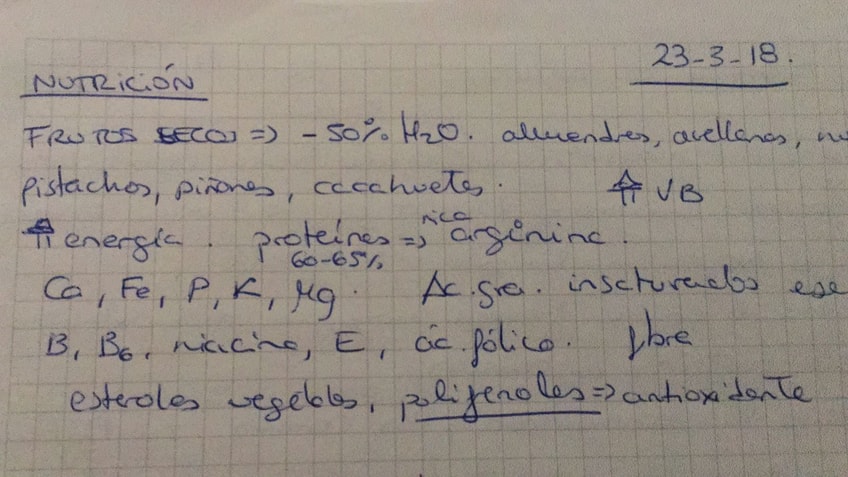 23-3-18.
NUTRICIÓN
FRUTOS SECOS => -50% H2O. almendras, avellanas,
pistachos, piñones, cacahuetes. ⇑ VB
⇑ energía. proteínas => rica arginina.
60-65%
Ca, Fe, P, K, Mg. Ac. gra. insaturados ese
B, B6, niacina, E, ác. fólico. fibra
esteroles vegetales, polifenoles => antioxidante